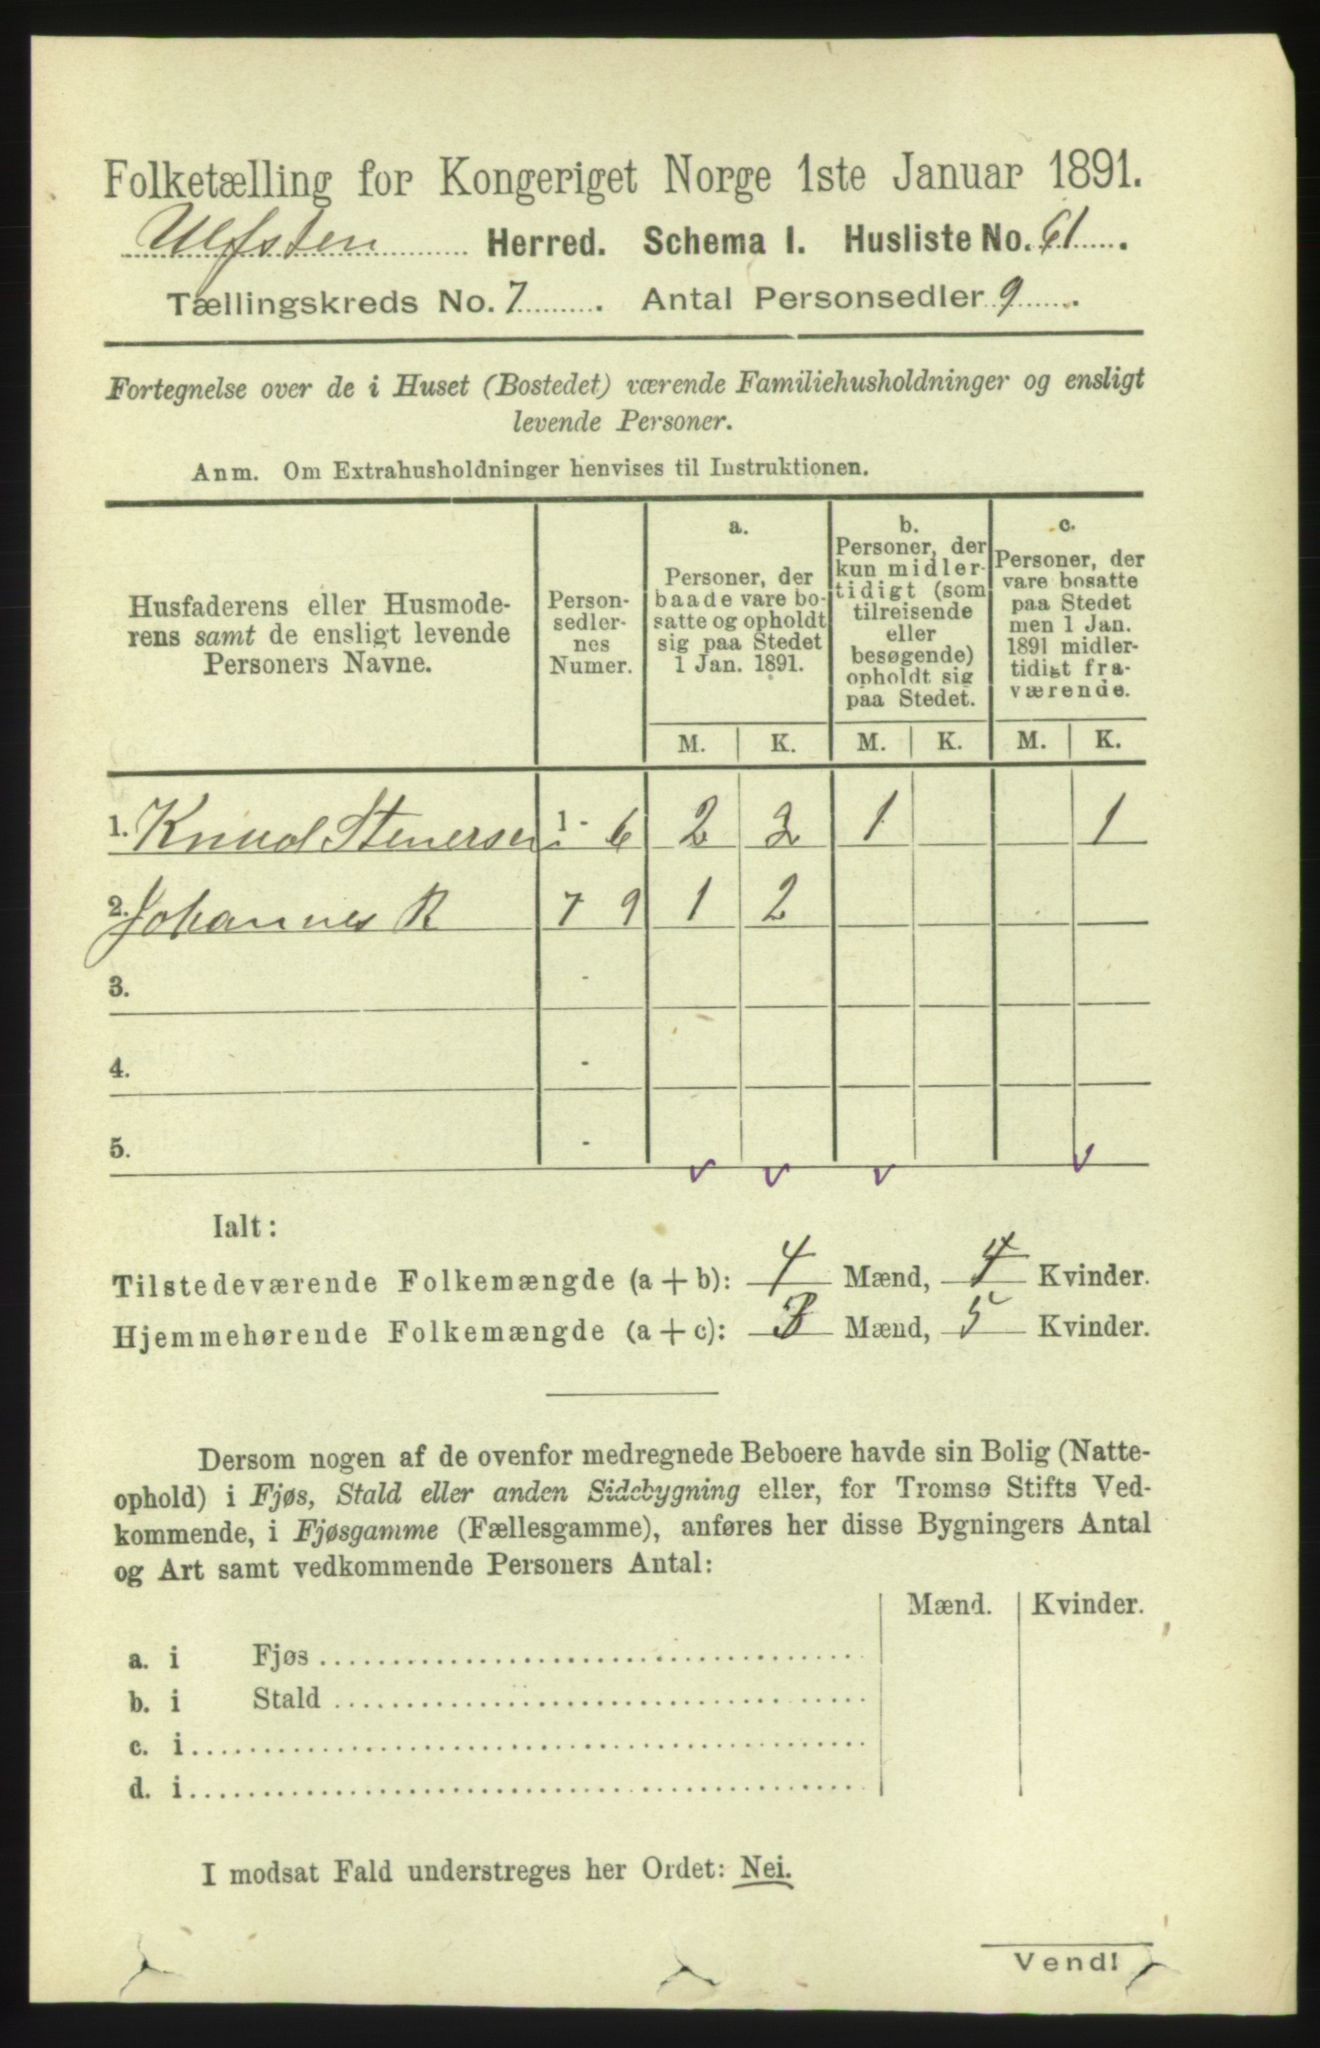 Folketælling for Kongeriget Norge 1ste Januar 1891.
Ulfsten Herred. Schema I. Husliste No. 61.
Tællingskreds No. 7. Antal Personsedler 9.
Fortegnelse over de i Huset (Bostedet) værende Familiehusholdninger og ensligt
levende Personer.
Anm. Om Extrahusholdninger henvises til Instruktionen.
Husfaderens eller Husmode-
rens samt de ensligt levende
Personers Navne.
Person-
sedler-
nes
Numer.
a.
Personer, der
baade vare bo-
satte og opholdt
sig paa Stedet
1 Jan. 1891.
b.
Personer, der
kun midler-
tidigt (som
tilreisende
eller
besøgende)
opholdt sig
paa Stedet.
c.
Personer, der
vare bosatte
paa Stedet
men 1 Jan.
1891 midler-
tidigt fra-
værende.
M. K. M. K. M. K.
1. Knud Stenersen 1 - 6 2 2 1 1
2. Johannes R 7 9 1 2
3. -
4. -
5. -
v v v v
Ialt:
Tilstedeværende Folkemængde (a + b): 4 Mænd, 4 Kvinder.
Hjemmehørende Folkemængde (a + c): 3 Mænd, 5 Kvinder.
Dersom nogen af de ovenfor medregnede Beboere havde sin Bolig (Natte-
ophold) i Fjøs, Stald eller anden Sidebygning eller, for Tromsø Stifts Ved-
kommende, i Fjøsgamme (Fællesgamme), anføres her disse Bygningers Antal
og Art samt vedkommende Personers Antal:
Mænd. Kvinder.
a. i Fjøs
b. i Stald
c. i
d. i
I modsat Fald understreges her Ordet: Nei.
Vend!